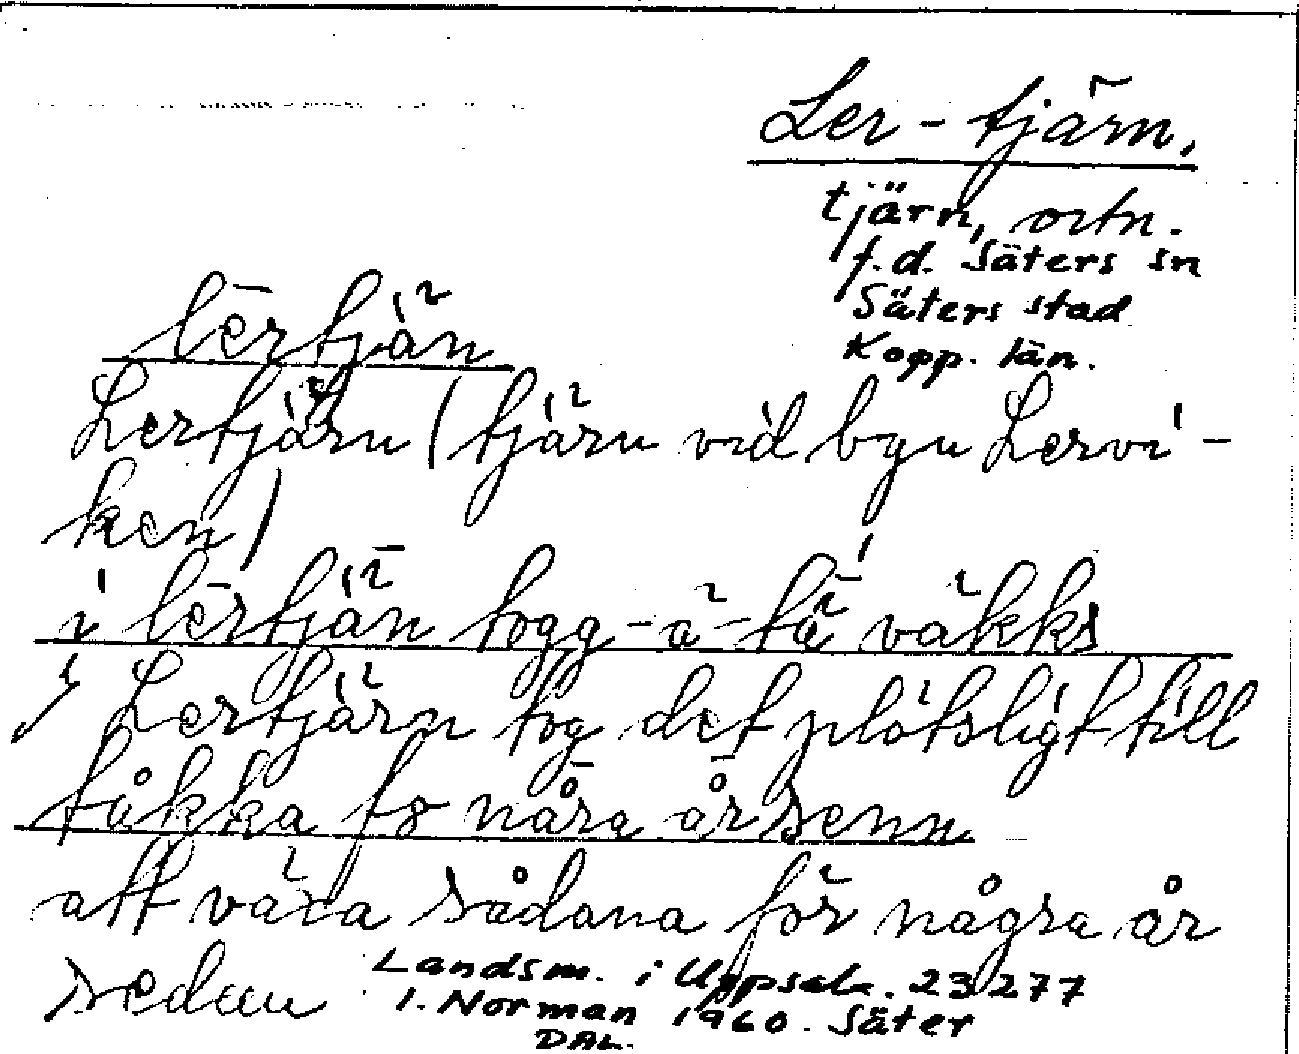 Ler-tjärn,
tjärn, ortn.
f.d. Säters sn
Säters stad
Kopp. län.
lērtjän
Lertjärn (tjärn vid byn Lervi-
ken)
i lērtjän togg-ä-tä väkks
I Lertjärn tog det plötsligt till
tåkka fo nåra år senn
att växa sådana för några år
sedan
Landsm. i Uppsala. 23277
I. Norman 1960. Säter
DAL.